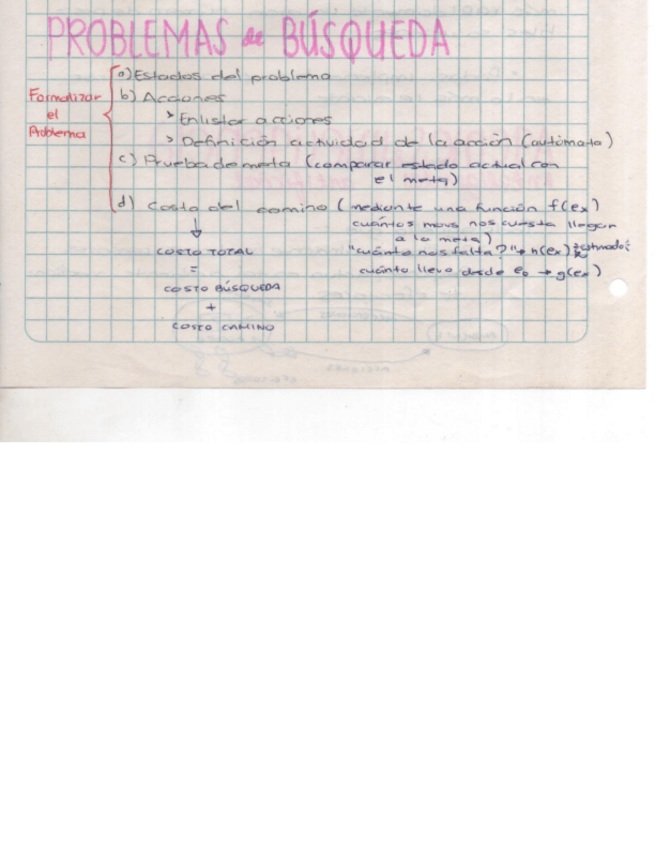 PROBLEMAS de BÚSQUEDA
Formalizar
el
Problema
a) Estados del problema
b) Acciones
> Enlistar acciones
> Definición actividad de la acción (autómata)
c) Prueba de meta (comparar estado actual con
el meta)
d) Costo del camino (mediante una función f(ex)
cuántos movs nos cuesta llegar
a la meta)
"cuánto nos falta?" → h(ex)
cuánto llevo desde e0 → g(ex)
↓
COSTO TOTAL
=
COSTO BÚSQUEDA
+
COSTO CAMINO